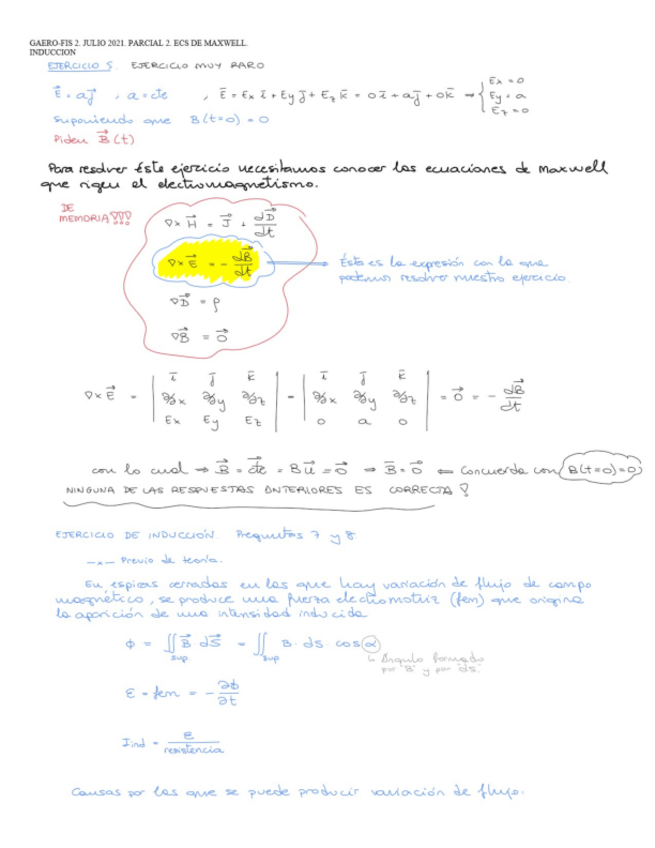 GAERO-FIS 2. JULIO 2021. PARCIAL 2. ECS DE MAXWELL.
INDUCCION
EJERCICIO 5. EJERCICIO MUY RARO
E⃗ = aj⃗ , a = cte , E̅ = Ex i̅ + Ey j̅ + Ez k̅ = 0i̅ + aj̅ + 0k̅ → { Ex = 0
Ey = a
Ez = 0
Suponiendo que B(t=0) = 0
Piden B⃗(t)
Para resolver éste ejercicio necesitamos conocer las ecuaciones de Maxwell
que rigen el electromagnetismo.
DE
MEMORIA!!!
∇×H⃗ = J⃗ + dD⃗/dt
∇×E⃗ = - dB⃗/dt
Ésta es la expresión con la que
podemos resolver nuestro ejercicio.
∇D⃗ = ρ
∇B⃗ = 0⃗
∇×E⃗ = | i̅ j̅ k̅ | = | i̅ j̅ k̅ | = 0⃗ = - dB⃗/dt
| ∂/∂x ∂/∂y ∂/∂z | | ∂/∂x ∂/∂y ∂/∂z |
| Ex Ey Ez | | 0 a 0 |
con lo cual → B⃗ = cte⃗ = B u⃗ = 0⃗ → B̅ = 0⃗ ← Concuerda con B(t=0)=0
NINGUNA DE LAS RESPUESTAS ANTERIORES ES CORRECTA!
EJERCICIO DE INDUCCIÓN. Preguntas 7 y 8.
-x- Previo de teoría.
En espiras cerradas en las que hay variación de flujo de campo
magnético, se produce una fuerza electromotriz (fem) que origina
la aparición de una intensidad inducida
ϕ = ∬sup B⃗ · dS⃗ = ∬sup B · ds · cos α
↳ Ángulo formado
por B⃗ y por ds⃗.
ε = fem = - ∂ϕ/∂t
Iind = ε/resistencia
Causas por las que se puede producir variación de flujo: